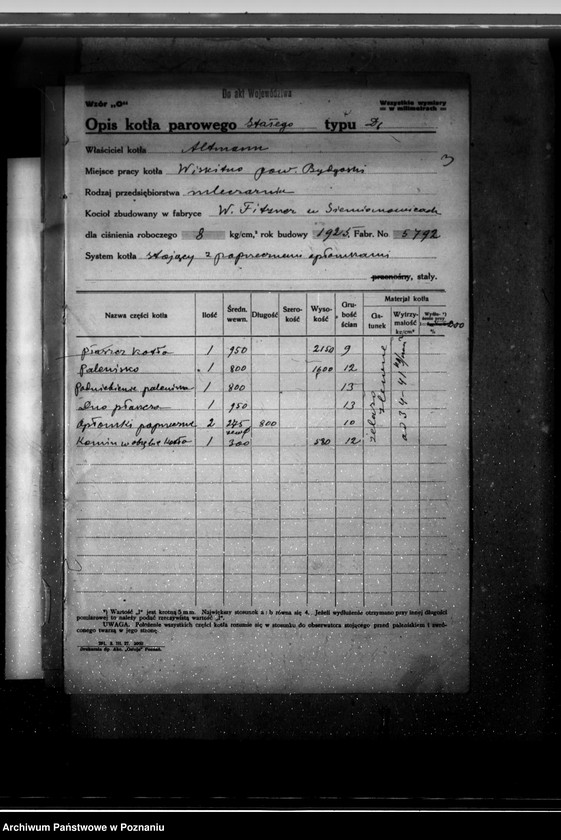 Do akt Województwa
Wzór „G”
Wszystkie wymiary
— w milimetrach —
Opis kotła parowego stałego typu
Właściciel kotła Altmann
Miejsce pracy kotła Wiskitno pow. Bydgoski
Rodzaj przedsiębiorstwa mleczarnia
Kocioł zbudowany w fabryce W. Fitzner w Siemianowicach
dla ciśnienia roboczego 8 kg/cm,² rok budowy 1925. Fabr. No 5792
System kotła stojący z poprzecznemi opłomkami
przenośny, stały.
Nazwa części kotła Ilość Średn. wewn. Długość Szerokość Wysokość Grubość ścian Materjał kotła
Gatunek Wytrzymałość kg/cm² %
Płaszcz kotła 1 950 2150 9
Palenisko 1 800 1600 12
Podniebienie paleniska 1 800 13
Dno płaszcza 1 950 13
Opłomki poprzeczne 2 245 800 10
Komin w obrębie kotła 1 300 580 12
żelazo zlewne
od 34-41
*) Wartość „l” jest krotną 5 mm. Największy stosunek a : b równa się 4. Jeżeli wydłużenie otrzymano przy innej długości
pomiarowej to należy podać rzeczywistą wartość „l”.
UWAGA. Położenie wszystkich części kotła rozumie się w stosunku do obserwatora stojącego przed paleniskiem i zwróconego twarzą w jego stronę.
Drukarnia Sp. Akc. „Ostoja” Poznań.
Archiwum Państwowe w Poznaniu